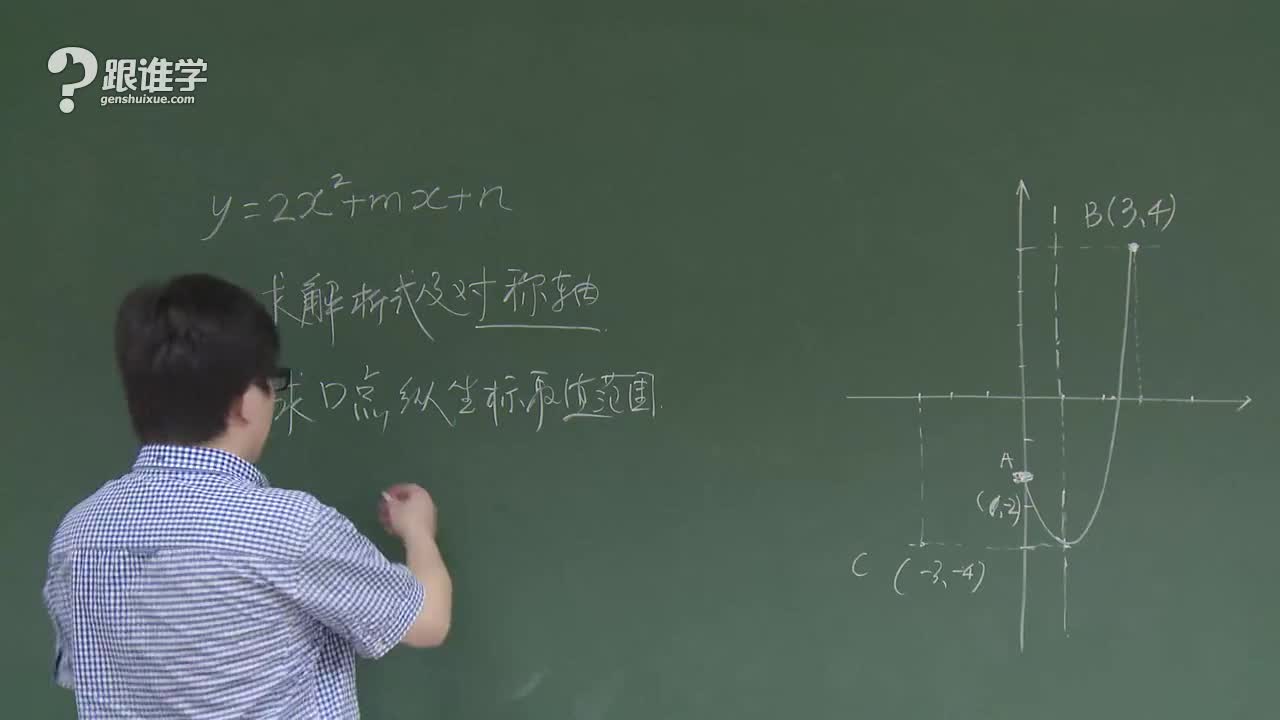 跟谁学
genshuixue.com
y=2x²+mx+n
求解析式及对称轴
求D点纵坐标取值范围.
B(3,4)
A
(0,-2)
C (-3,-4)